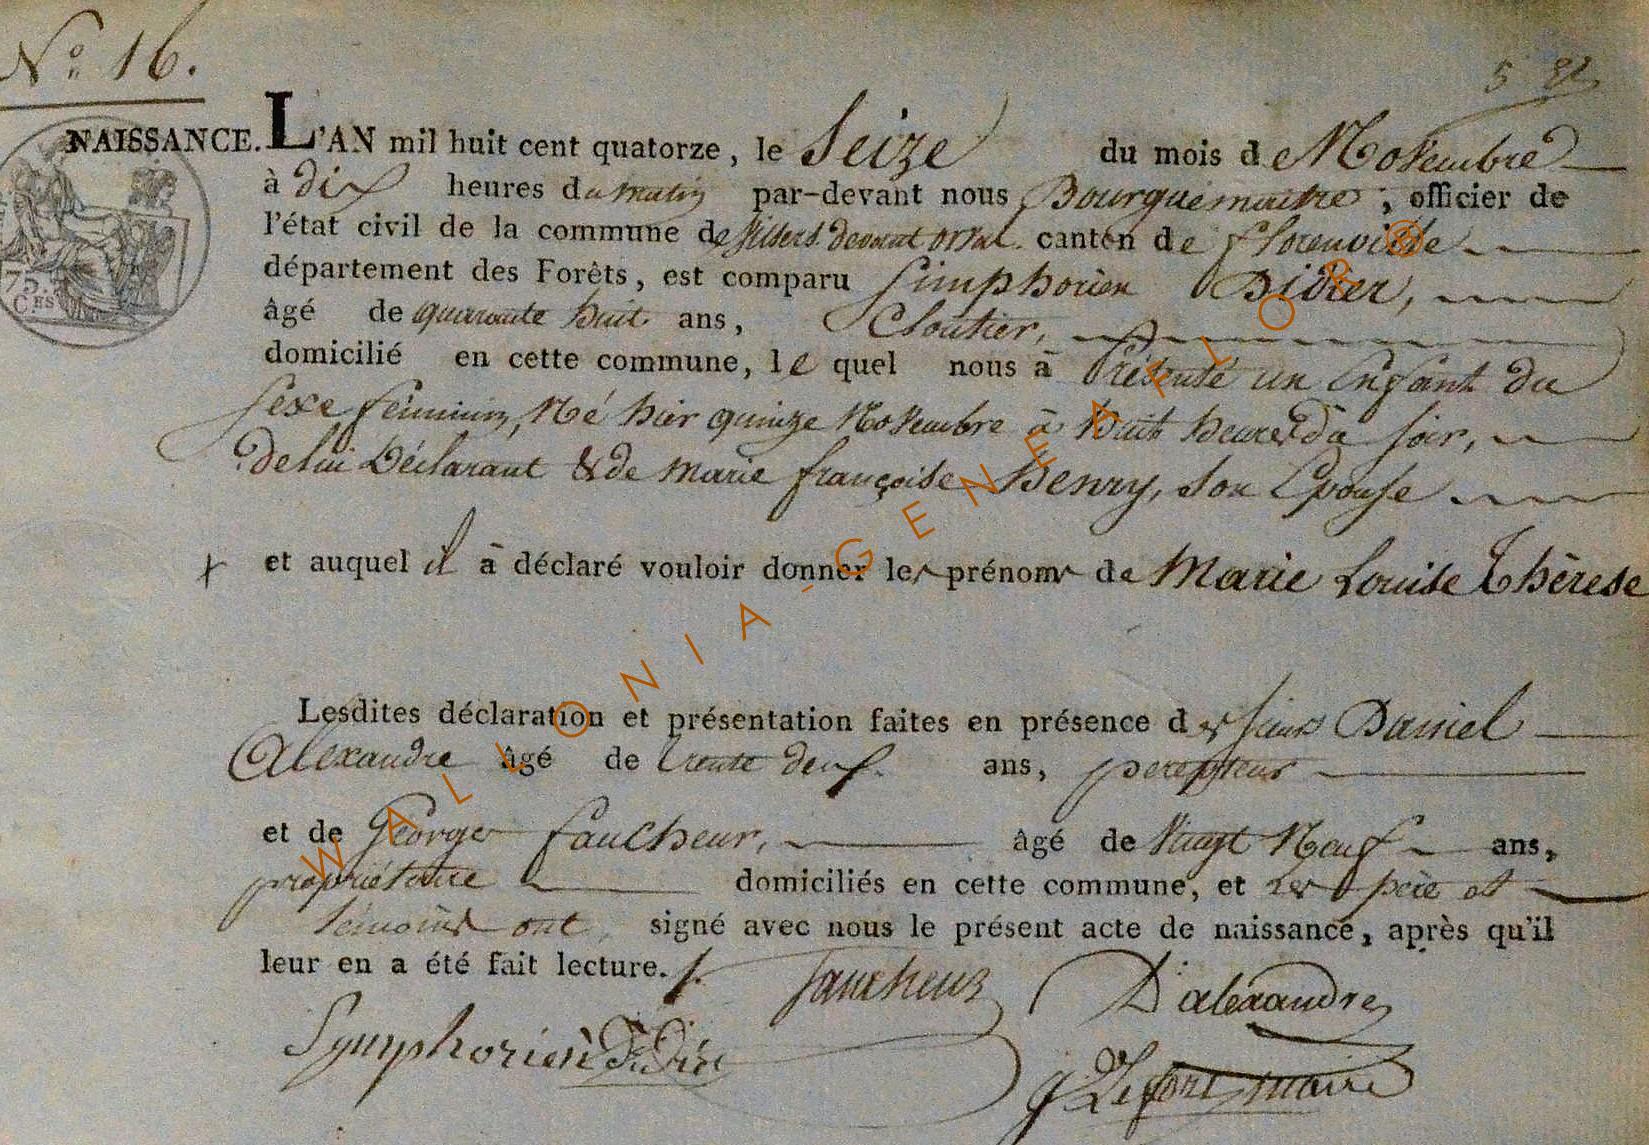 N.º 16.
NAISSANCE. L'AN mil huit cent quatorze, le Seize du mois de Novembre
à dix heures du matin par-devant nous Bourguemaitre, officier de
l'état civil de la commune de Villers devant orval canton de florenville
département des Forêts, est comparu Simphorien Didier,
âgé de quarante huit ans, Cloutier,
domicilié en cette commune, le quel nous à Présenté un Enfant du
sexe féminin, Né hier quinze Novembre à huit heures du soir,
de lui Déclarant & de marie françoise Henry, son Epouse
et auquel il à déclaré vouloir donner les prénoms de Marie Louise Thèrese
Lesdites déclaration et présentation faites en présence des sieurs Daniel
Alexandre âgé de trente deux ans, percepteur
et de George faucheur, âgé de Vingt Neuf ans,
propriétaire domiciliés en cette commune, et les père et
témoins ont signé avec nous le présent acte de naissance, après qu'il
leur en a été fait lecture.
faucheur D alexandre
Symphorien Didier
Lefort maire
75.
C.ES
WALLONIA-GENEAFLOR®